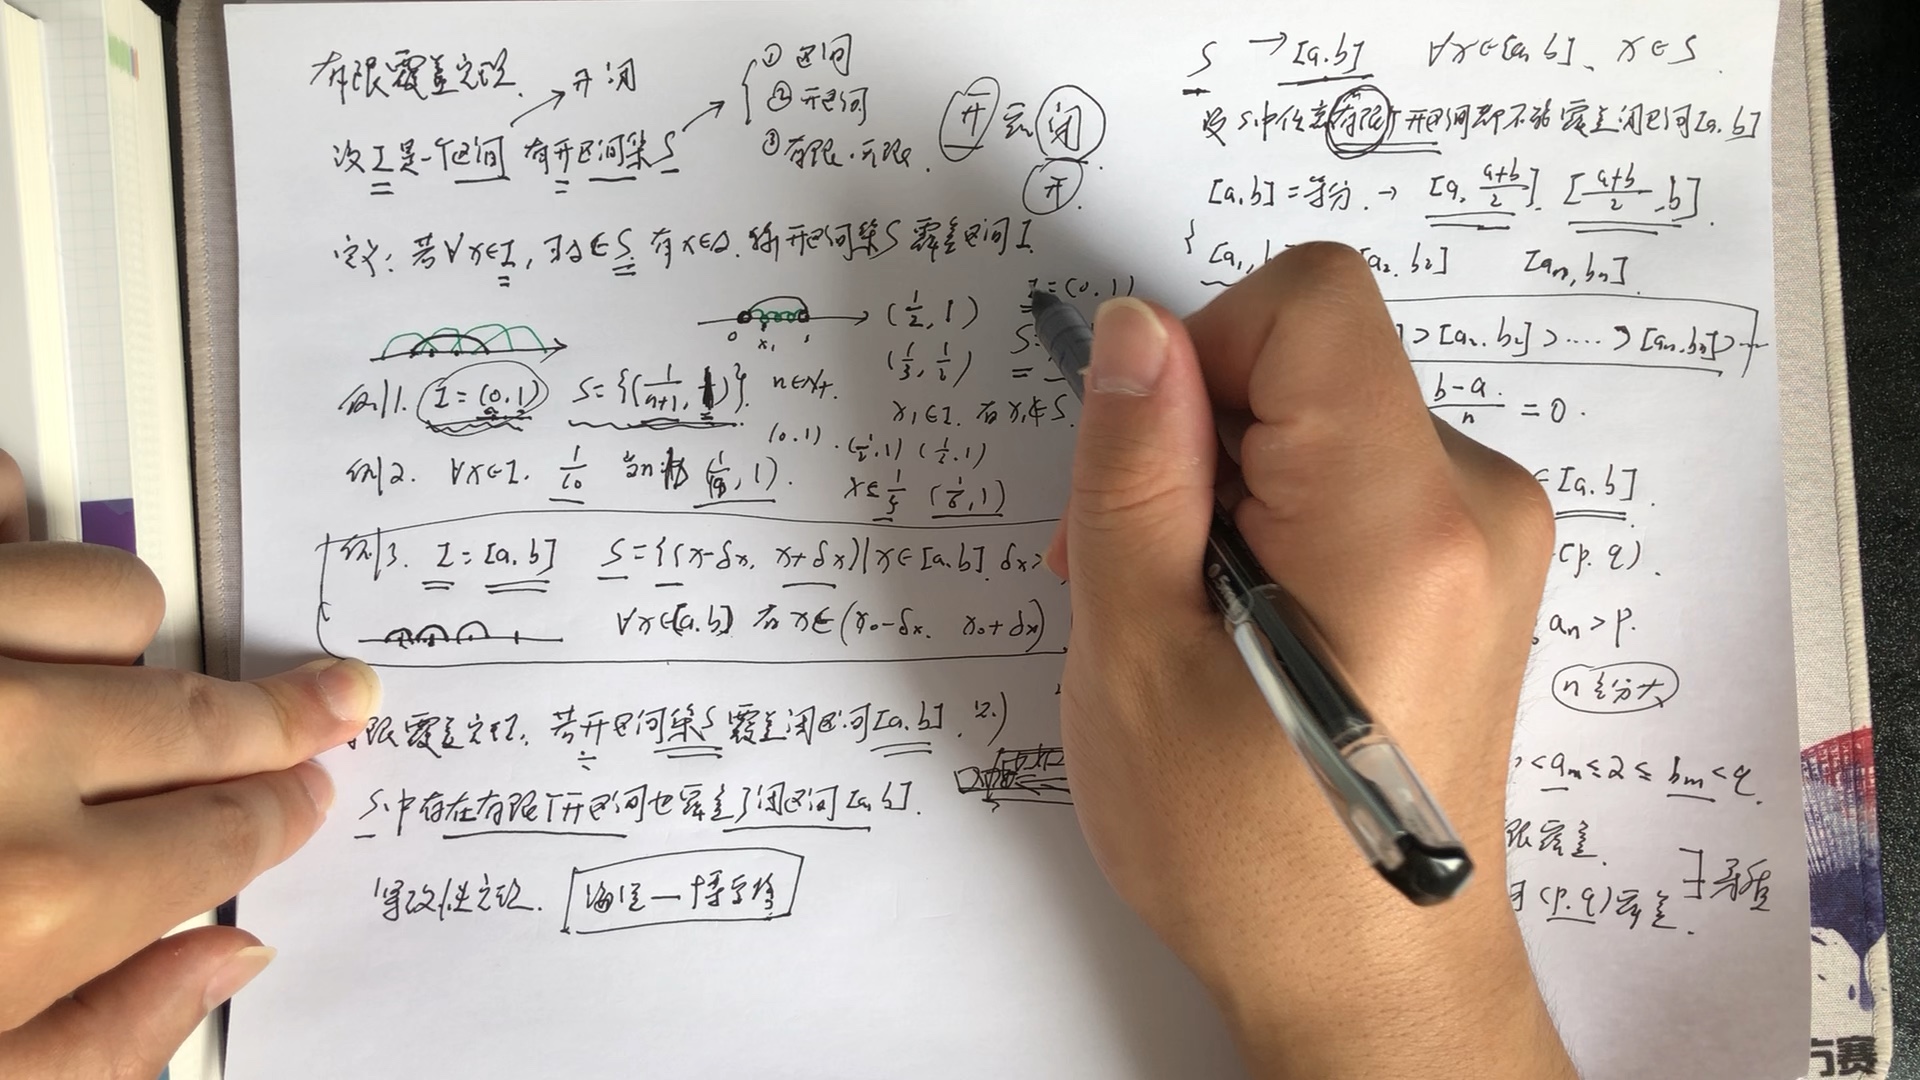 有限覆盖定理.
→ 开 闭
设 I 是一个区间 有开区间集 S
① 区间
② 开区间
③ 有限.无限.
开 盖 闭
开
定义: 若 ∀x∈I, ∃Δ∈S, 有 x∈Δ. 称开区间集 S 覆盖区间 I.
0 x₁ 1
(1/2, 1)
(1/3, 1/2)
I = (0.1)
S =
例1. I = (0,1) S = {(1/(n+1), )}. n∈N+.
x₁∈I. 有 x₁∉S.
(0.1) . (1/2.1) (1/2.1)
例2. ∀x∈I. 1/10 当n (, 1). x= 1/5 (1/6,1)
例3. I = [a,b] S = {(x-δx, x+δx) | x∈[a,b]. δx>
∀x∈[a,b] 有 x∈(x₀-δx. x₀+δx)
限覆盖定理. 若开区间集 S 覆盖闭区间 [a,b].
S中存在有限个开区间也覆盖了闭区间 [a,b].
S → [a.b] ∀x∈[a,b]、x∈S.
设 S中任意有限个开区间都不能覆盖闭区间[a.b]
[a.b] = 等分. → [a, (a+b)/2]. [(a+b)/2, b].
[a₁, b a₂. b₂] [an, bn].
] ⊃ [a₂. b₂] ⊃ .... ⊃ [an.bn] ⊃ ...
(b-a)/n = 0.
∈ [a.b].
(p. q).
an > p.
n 充分大
< am ≤ 2 ≤ bm < q.
限覆盖.
(p. q) 覆盖. 矛盾
方赛